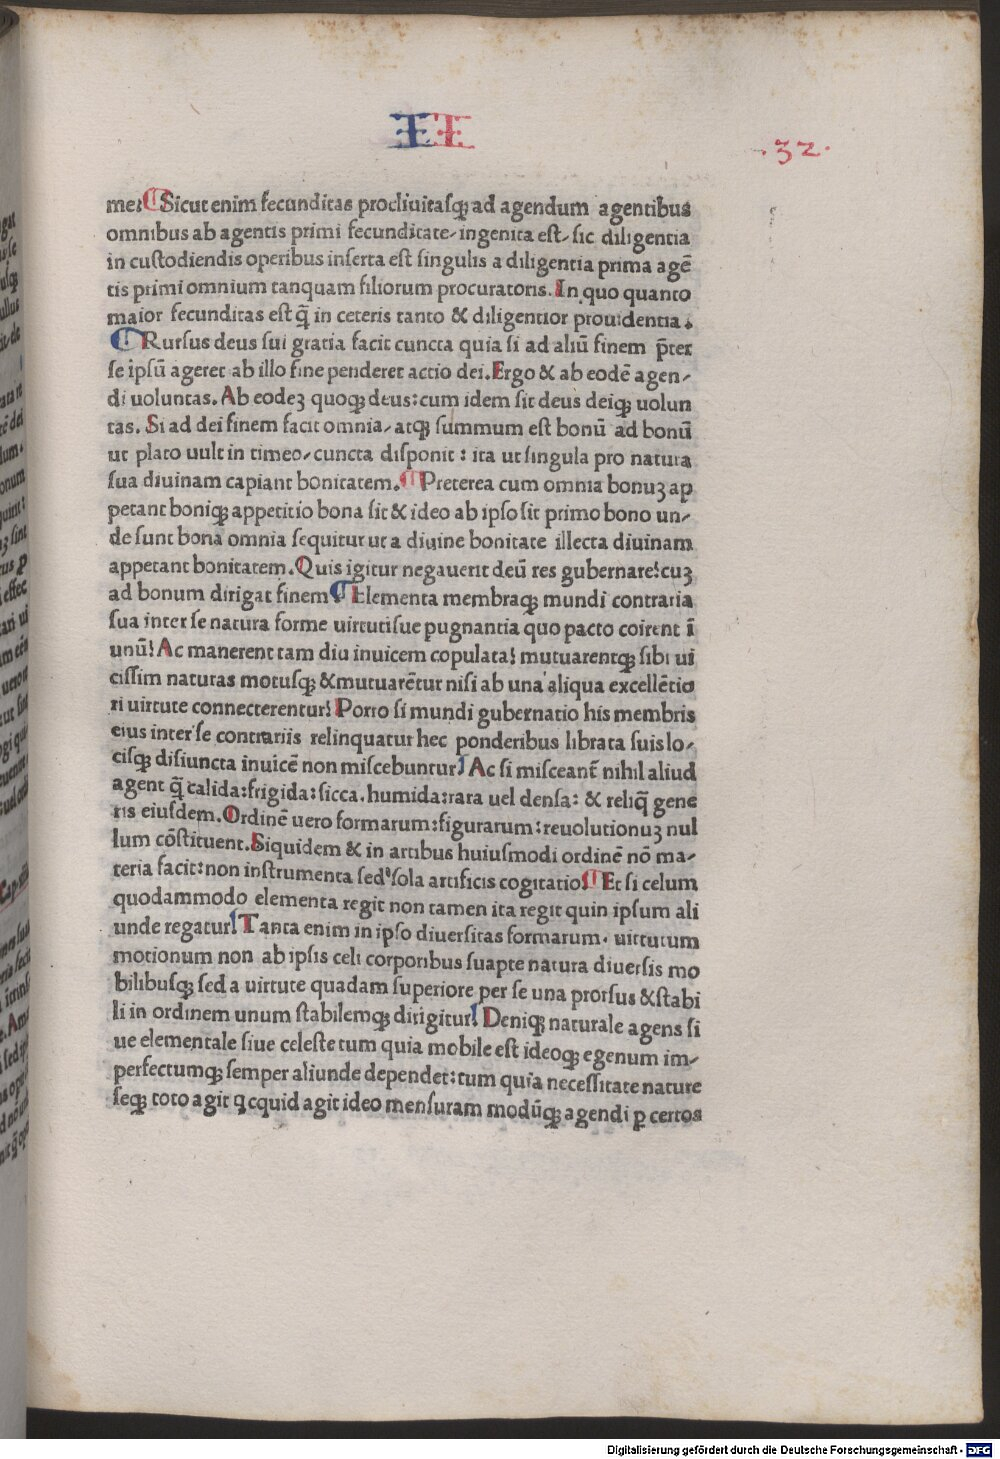 II
.32.
me? ¶ Sicut enim fecunditas procliuitasqꝫ ad agendum agentibus
omnibus ab agentis primi fecunditate, ingenita est, sic diligentia
in custodiendis operibus inserta est singulis a diligentia prima agē
tis primi omnium tanquam filiorum procuratoris. In quo quanto
maior fecunditas est q̃ in ceteris tanto & diligentior prouidentia.
¶ Rursus deus sui gratia facit cuncta quia si ad aliū finem p̄ter
se ipsū ageret ab illo fine penderet actio dei. Ergo & ab eodē agen-
di uoluntas. Ab eodeꝫ quoqꝫ deus: cum idem sit deus deiqꝫ uolun
tas. Si ad dei finem facit omnia, atqꝫ summum est bonū ad bonū
ut plato uult in timeo, cuncta disponit: ita ut singula pro natura
sua diuinam capiant bonitatem. ¶ Preterea cum omnia bonuꝫ ap
petant boniqꝫ appetitio bona sit & ideo ab ipso sit primo bono un-
de sunt bona omnia sequitur ut a diuine bonitate illecta diuinam
appetant bonitatem. Quis igitur negauerit deū res gubernare? cuꝫ
ad bonum dirigat finem ¶ Elementa membraqꝫ mundi contraria
sua inter se natura forme uirtutisue pugnantia quo pacto coirent ī
unū? Ac manerent tam diu inuicem copulata? mutuarentqꝫ sibi ui
cissim naturas motusqꝫ & mutuarētur nisi ab una aliqua excellētio
ri uirtute connecterentur? Porro si mundi gubernatio his membris
eius inter se contrariis relinquatur hec ponderibus librata suis lo-
cisqꝫ disiuncta inuicē non miscebuntur? Ac si misceant̄ nihil aliud
agent q̃ calida: frigida: sicca. humida: rara uel densa: & reliq̄ gene
ris eiusdem. Ordinē uero formarum: figurarum: reuolutionuꝫ nul
lum cōstituent. Siquidem & in artibus huiusmodi ordinē nō ma-
teria facit: non instrumenta sed sola artificis cogitatio? ¶ Et si celum
quodammodo elementa regit non tamen ita regit quin ipsum ali
unde regatur? Tanta enim in ipso diuersitas formarum. uirtutum
motionum non ab ipsis celi corporibus suapte natura diuersis mo
bilibusqꝫ sed a uirtute quadam superiore per se una prorsus & stabi
li in ordinem unum stabilemqꝫ dirigitur? Deniqꝫ naturale agens si
ue elementale siue celeste tum quia mobile est ideoqꝫ egenum im-
perfectumqꝫ semper aliunde dependet: tum quia necessitate nature
seqꝫ toto agit qcquid agit ideo mensuram modūqꝫ agendi ꝑ certos
Digitalisierung gefördert durch die Deutsche Forschungsgemeinschaft - DFG